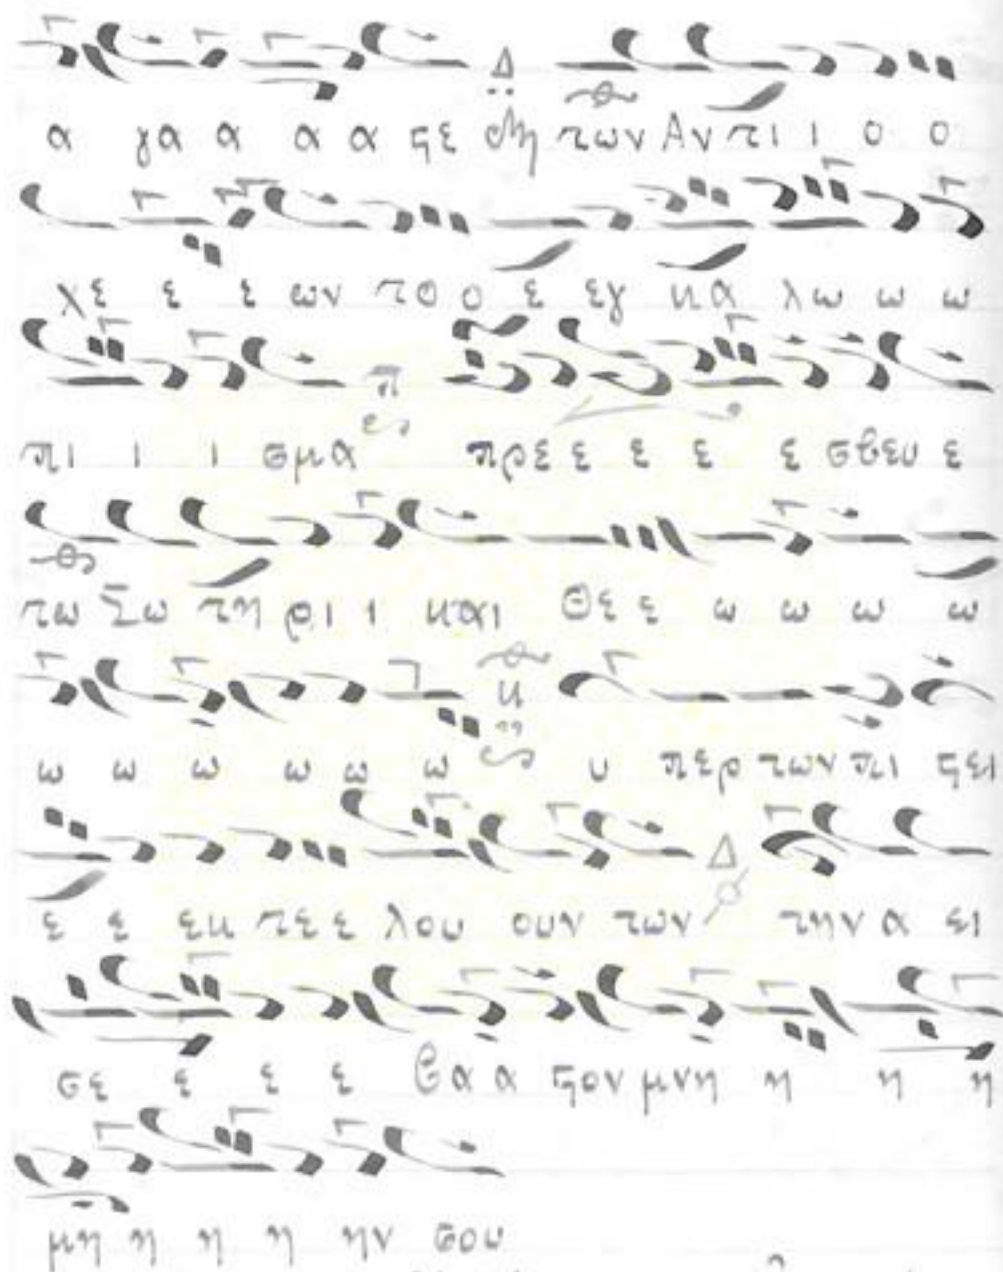 α γα α α α ϛε Δ δη των Αν τι ι ο ο
χε ε ε ων το ο ε εγ κα λω ω ω
πι ι ι σμα π πρε ε ε ε ε σβευ ε
τω Σω τη ρι ι και Θε ε ω ω ω ω
ω ω ω ω ω ω κ υ περ των πι ϛει
ε ε εκ τε ε λου ουν των Δ την α ει
σε ε ε ε βα α ϛον μνη η η η
μη η η η ην σου